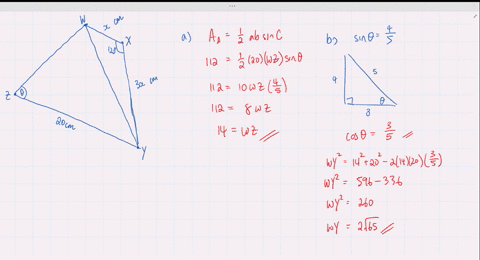 W
x cm
X
120°
32 cm
Z
θ
20cm
Y
a) A△ = ½ ab sin C
112 = ½ (20)(WZ) sin θ
112 = 10 WZ (4/5)
112 = 8 WZ
14 = WZ
b) sin θ = 4/5
4
5
θ
3
cos θ = 3/5
WY² = 14² + 20² - 2(14)(20)(3/5)
WY² = 596 - 336
WY² = 260
WY = 2√65